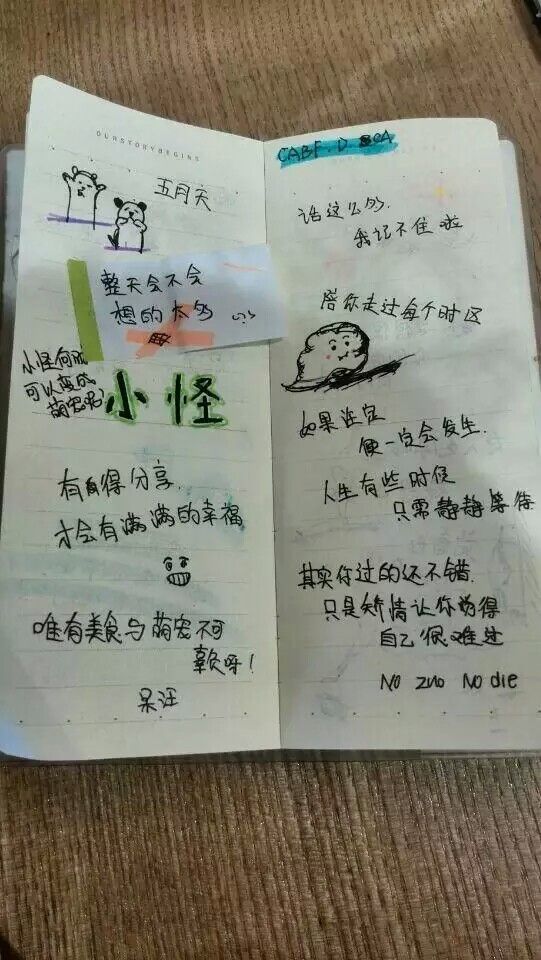 OURSTORYBEGINS
五月天
整天会不会
想的太多
小怪何时
可以变成
萌宠呢?
小怪
有得分享
才会有满满的幸福
唯有美食与萌宠不可
辜负呀!
呆汪
CABF. D
话这么多.
我记不住啦
陪你走过每个时区
如果注定
便一定会发生.
人生有些时候
只需静静等待
其实你过的还不错.
只是矫情让你觉得
自己很难过
No zuo No die